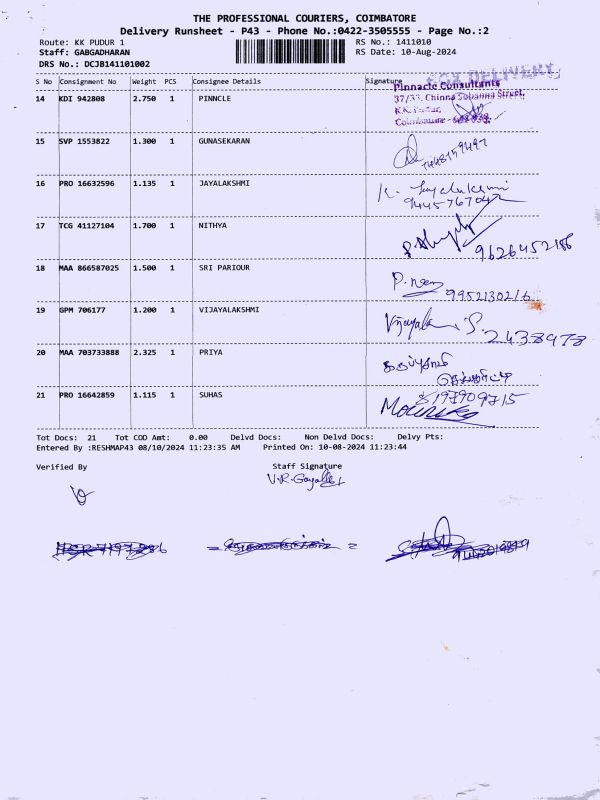 THE PROFESSIONAL COURIERS, COIMBATORE
Delivery Runsheet - P43 - Phone No.:0422-3505555 - Page No.:2
Route: KK PUDUR 1 RS No.: 1411010
Staff: GABGADHARAN RS Date: 10-Aug-2024
DRS No.: DCJB141101002
S No Consignment No Weight PCS Consignee Details Signature
BOX DELIVERY
14 KDI 942808 2.750 1 PINNCLE Pinnacle Consultants
37/33, Chinna Subanna Street,
K.K. Pudur,
Coimbatore - 641 038.
15 SVP 1553822 1.300 1 GUNASEKARAN
16 PRO 16632596 1.135 1 JAYALAKSHMI K. Jayalakshmi
9445767042
17 TCG 41127104 1.700 1 NITHYA
9626452186
18 MAA 866587025 1.500 1 SRI PARIOUR
9952130216
19 GPM 706177 1.200 1 VIJAYALAKSHMI
2438978
20 MAA 703733888 2.325 1 PRIYA
21 PRO 16642859 1.115 1 SUHAS 8197909715
Tot Docs: 21 Tot COD Amt: 0.00 Delvd Docs: Non Delvd Docs: Delvy Pts:
Entered By :RESHMAP43 08/10/2024 11:23:35 AM Printed On: 10-08-2024 11:23:44
Verified By Staff Signature